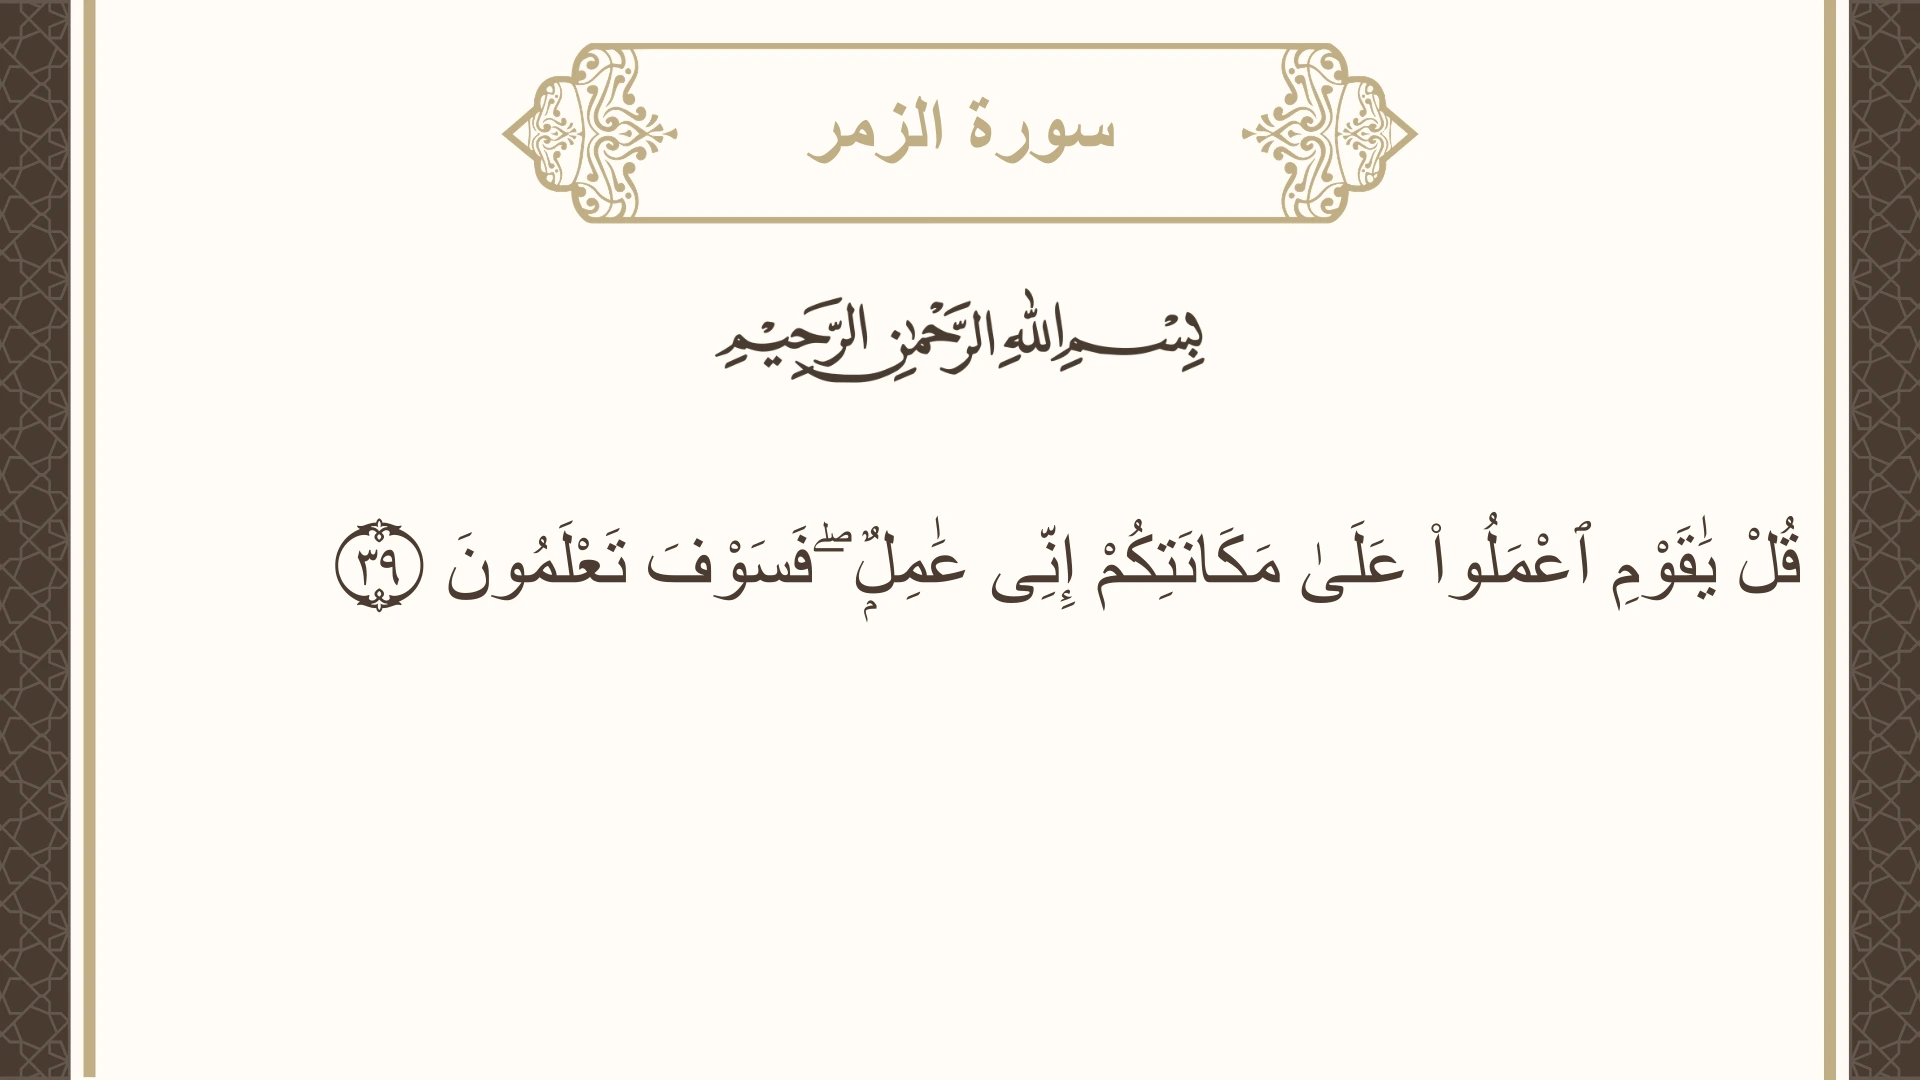 سورة الزمر
بِسْمِ اللهِ الرَّحْمٰنِ الرَّحِيْمِ
قُلْ يَٰقَوْمِ ٱعْمَلُوا۟ عَلَىٰ مَكَانَتِكُمْ إِنِّى عَٰمِلٌۭ ۖ فَسَوْفَ تَعْلَمُونَ ٣٩